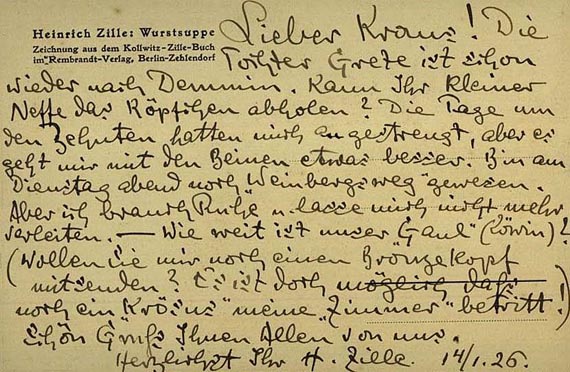 Heinrich Zille: Wurstsuppe
Zeichnung aus dem Kollwitz-Zille-Buch
im Rembrandt-Verlag, Berlin-Zehlendorf
Lieber Kraus! Die
Tochter Grete ist schon
wieder nach Demmin. Kann Ihr kleiner
Neffe das Köpfchen abholen? Die Tage um
den Zehnten hatten mich angestrengt, aber es
geht mir mit den Beinen etwas besser. Bin am
Dienstag abend noch "Weinbergsweg" gewesen.
Aber ich brauch Ruhe u. lasse mich nicht mehr
verleiten. — Wie weit ist unser Gaul" (Löwin)?
(Wollen Sie mir noch einen Bronzekopf
mitsenden? Es ist doch möglich, daß
noch ein "Krösus" meine "Zimmer" betritt!)
Schön Gruß Ihnen Allen von uns.
Herzlichst Ihr H. Zille. 14/1.26.